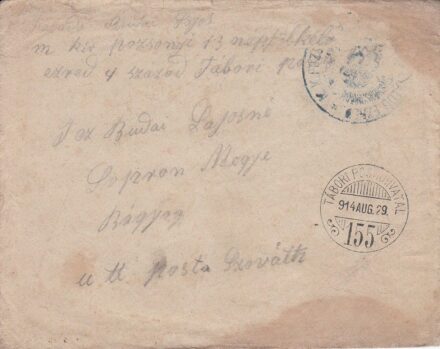 Budai Lajos
m kir pozsonyi 13 népfölkelő
ezred 4 század Tábori posta
Tez Budai Lajosné
Sopron Megye
Rágyög
u tt posta Szováth
TÁBORI POSTAHIVATAL
914 AUG. 29.
155